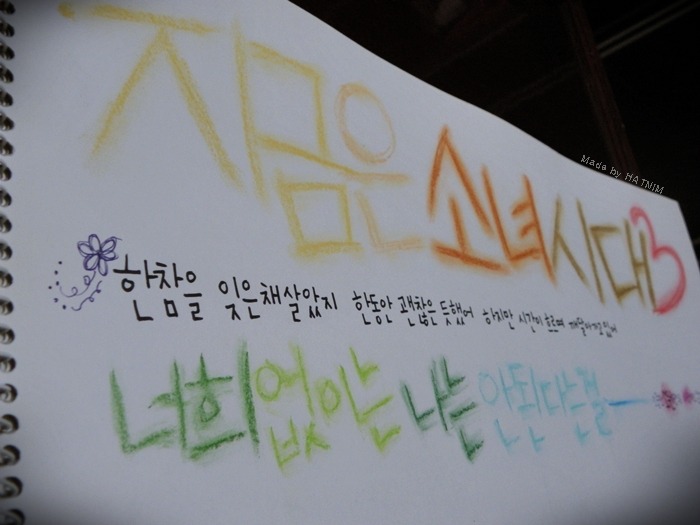 지금은 소녀시대3
Made by HATNIM
한참을 잊은채살았지 한동안 괜찮은 듯했어 하지만 시간이 흐르며 깨달아가고있어
너희 없이는 나는 안된다는걸